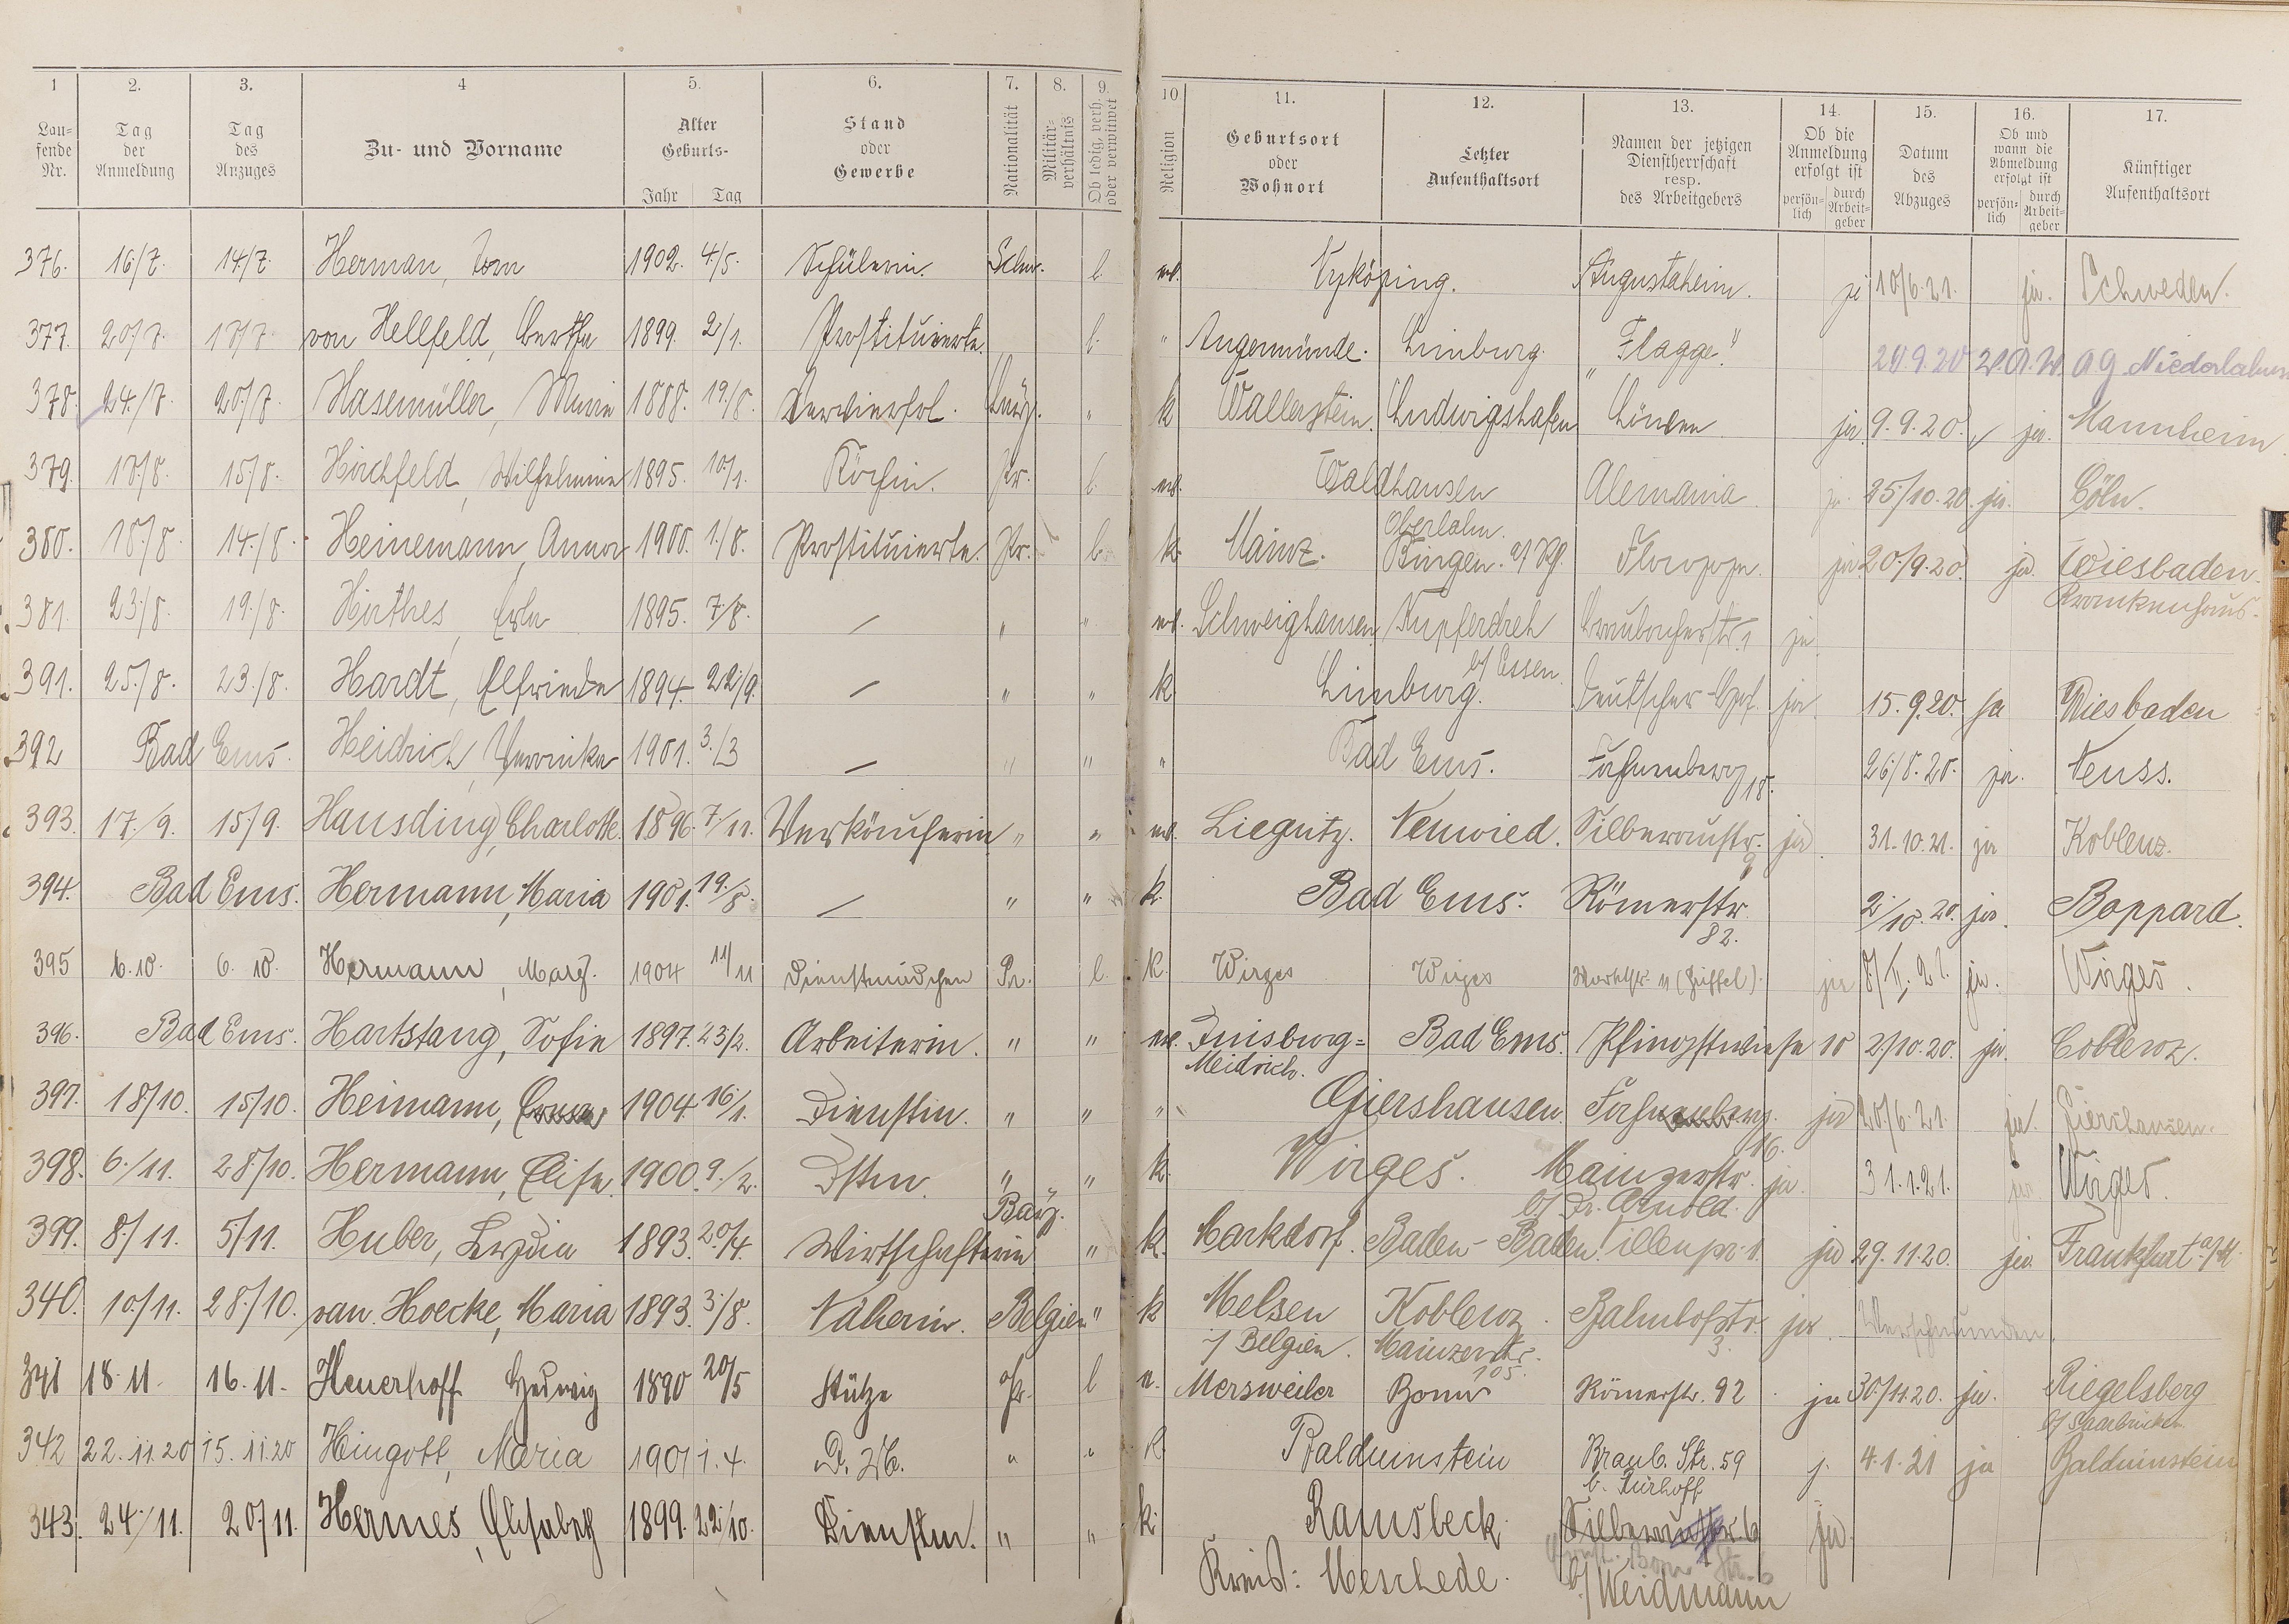 1 2. 3. 4 5. 6. 7. 8. 9. 10 11. 12. 13. 14. 15. 16. 17.
Lau-
fende
Nr.
Tag
der
Anmeldung
Tag
des
Anzuges
Zu- und Vorname
Alter
Geburts-
Jahr Tag
Stand
oder
Gewerbe
Nationalität
Militär-
verhältnis
Ob ledig, verh.
oder verwitwet
Religion
Geburtsort
oder
Wohnort
Letzter
Aufenthaltsort
Namen der jetzigen
Dienstherrschaft
resp.
des Arbeitgebers
Ob die
Anmeldung
erfolgt ist
persön-
lich
durch
Arbeit-
geber
Datum
des
Abzuges
Ob und
wann die
Abmeldung
erfolgt ist
persön-
lich
durch
Arbeit-
geber
Künftiger
Aufenthaltsort
376. 16./7. 14./7. Herman, 1902. 4/5. Schülerin. Schw. l. ev. Nyköping. Augustaheim. ja 10/6.21. ja. Schweden.
377. 20/7. 17/7. von Hellfeld, Bertha 1899. 2/1. Prostituierte. l. " Angermünde. Limburg. "Flagge" 20.9.20 A.G. Niederlahnstein
378. 24./7. 20./7. Hasemüller, Maria 1888. 19./8. Servierfrl. Bay. " k Wallerstein. Ludwigshafen Löwen ja 9.9.20. ja. Mannheim
379. 17/8. 15/8. Hirchfeld, Wilhelmine 1895. 10./1. Köchin. Pr. l. ev. Waldhausen Alemania ja. 25/10.20. ja. Cöln.
Oberlahn.
380. 18./8. 14./8. Heinemann, Anna 1900. 1./8. Prostituierte. Pr. l. k. Mainz. Bingen. a/Rh. ja. 20./9.20. ja. Wiesbaden.
Krankenhaus.
381. 23/8. 19./8. Hirthes, Erla 1895. 7/8. — " " ev. Schweighausen Kupferdreh Braubacherstr. 1 ja
b/ Essen.
391. 25./8. 23./8. Hardt, Elfriede 1894. 22./9. — " " k. Limburg. Deutscher Hof. ja. 15.9.20. ja Wiesbaden
392 Bad Ems. Heidrich, Veronika 1901. 3./3 — " " " Bad Ems. Fahnenberg 18. 26/8.20. ja. Neuss.
393. 17./9. 15/9. Hausding, Charlotte. 1896. 7./11. Verkäuferin " " ev. Liegnitz. Neuwied. Silberaustr. 9 ja. 31.10.21. ja Koblenz.
394. Bad Ems. Hermann, Maria 1901. 19./8. — " " k. Bad Ems. Römerstr. 82. 2./10.20. ja. Boppard.
395 6.10. 6.10. Hermann, Marg. 1904 11/11 Dienstmädchen Pr. l. k. Wirges Wirges ja 8./II.21. ja. Wirges.
396. Bad Ems. Hartstang, Sofie 1897. 23/2. Arbeiterin. " " ev. Duisburg= Bad Ems. Pfingstwiese 10 2/10.20. ja. Coblenz.
Meidrich.
397. 18/10. 15/10. Heimann, Erna 1904. 16./1. Dienstm. " " " Giershausen. Fahnenberg. 16. ja 20/6.21. ja. Giershausen.
398. 6./11. 28/10. Hermann, Elise. 1900. 9./2. Dstm. " " k. Wirges. Mainzerstr. ja. 31.1.21. ja. Wirges.
b/ Dr. Arnold.
399. 8./11. 5/11. Huber, Luzia 1893. 20./4. Wirtschafterin Bay. " k. Markdorf. Baden-Baden. Villenpr. 1. ja 29.11.20. ja. Frankfurt a/M.
340. 10./11. 28./10. van Hoecke, Maria 1893. 3./8. Näherin. Belgien " k Melsen Koblenz. Bahnhofstr. 3. ja. Verschwunden.
/ Belgien. Mainzerstr. 105.
341 18.11. 16.11. Heuerhoff Hedwig 1890 20/5 Stütze Pr. l e. Mersweiler Bonn Römerstr. 92 ja 30./11.20. ja. Riegelsberg
b/ Saarbrücken
342 22.11.20 15.11.20 Hingott, Maria 1901 1.4. D. M. " " k. Balduinstein Braub. Str. 59 j. 4.1.21 ja Balduinstein
b. Kürhoff
343. 24./11. 20./11. Hermes, Elisabeth 1899. 22./10. Dienstm. " " k. Ramsbeck Silberaustr. 6 ja.
Kreis: Meschede. b/ Weidmann